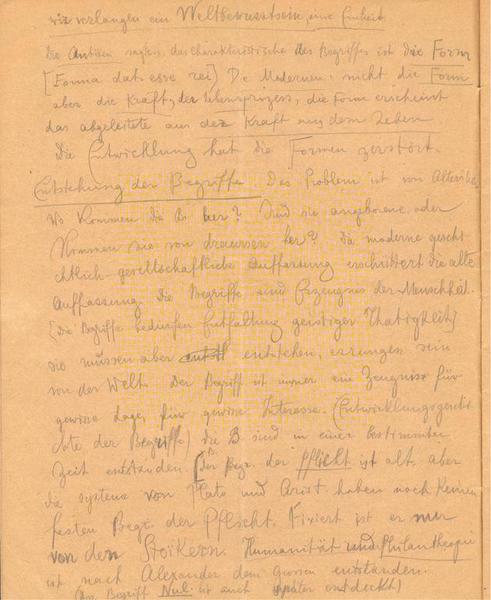 wir verlangen ein Weltbewusstsein, eine Einheit
Die Antiken sagten das charakteristische des Begriffes ist die Form
[Forma dat esse rei] Die Modernen: nicht die Form
aber die Kraft, der Lebensprozess, die Form erscheint
das abgeleitete aus der Kraft aus dem Leben
Die Entwicklung hat die Formen zerstört.
Entstehung der Begriffe Das Problem ist von Alters her
Wo kommen die B. her? Sind sie angeborene oder
kommen sie von draussen her? Die moderne geschi
chtlich-gesellschaftliche Auffassung erschüttert die alte
Auffassung. Die Begriffe sind Erzeugniss der Menschheit.
(Die Begriffe bedürfen Entfaltung geistiger Thätigkeit)
sie müssen aber entstehen, errungen sein
von der Welt. Der Begriff ist immer ein Zeugniss für
gewisse Lage, für gewisse Interesse. (Entwicklungsgeschi
chte der Begriffe) die B sind in einer bestimmten
Zeit entstanden. (Der Begr. der Pflicht ist alt, aber
die systeme von Plato und Arist. haben noch keinen
festen Begr. der Pflicht. Fixiert ist er nur
von den Stoikern. Humanität und Philanthropie
ist nach Alexander dem Grossen entstanden.
Der Begriff Nul. ist auch später entdeckt)